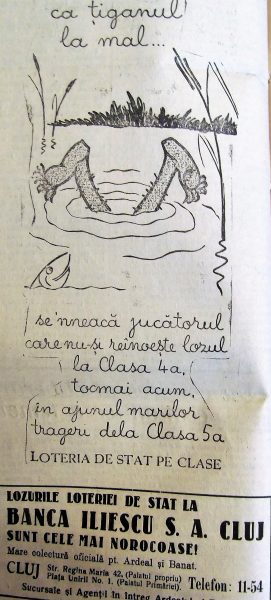 ca țiganul
la mal...
se 'nneacă jucătorul
care nu-și reînoește lozul
la Clasa 4a,
tocmai acum,
în ajunul marilor
trageri dela Clasa 5a
LOTERIA DE STAT PE CLASE
LOZURILE LOTERIEI DE STAT LA
BANCA ILIESCU S. A. CLUJ
SUNT CELE MAI NOROCOASE!
Mare colectură oficială pt. Ardeal și Banat.
CLUJ Str. Regina Maria 42, (Palatul propriu) Telefon: 11-54
Piața Unirii No. 1. (Palatul Primăriei)
Sucursale și Agenții în întreg